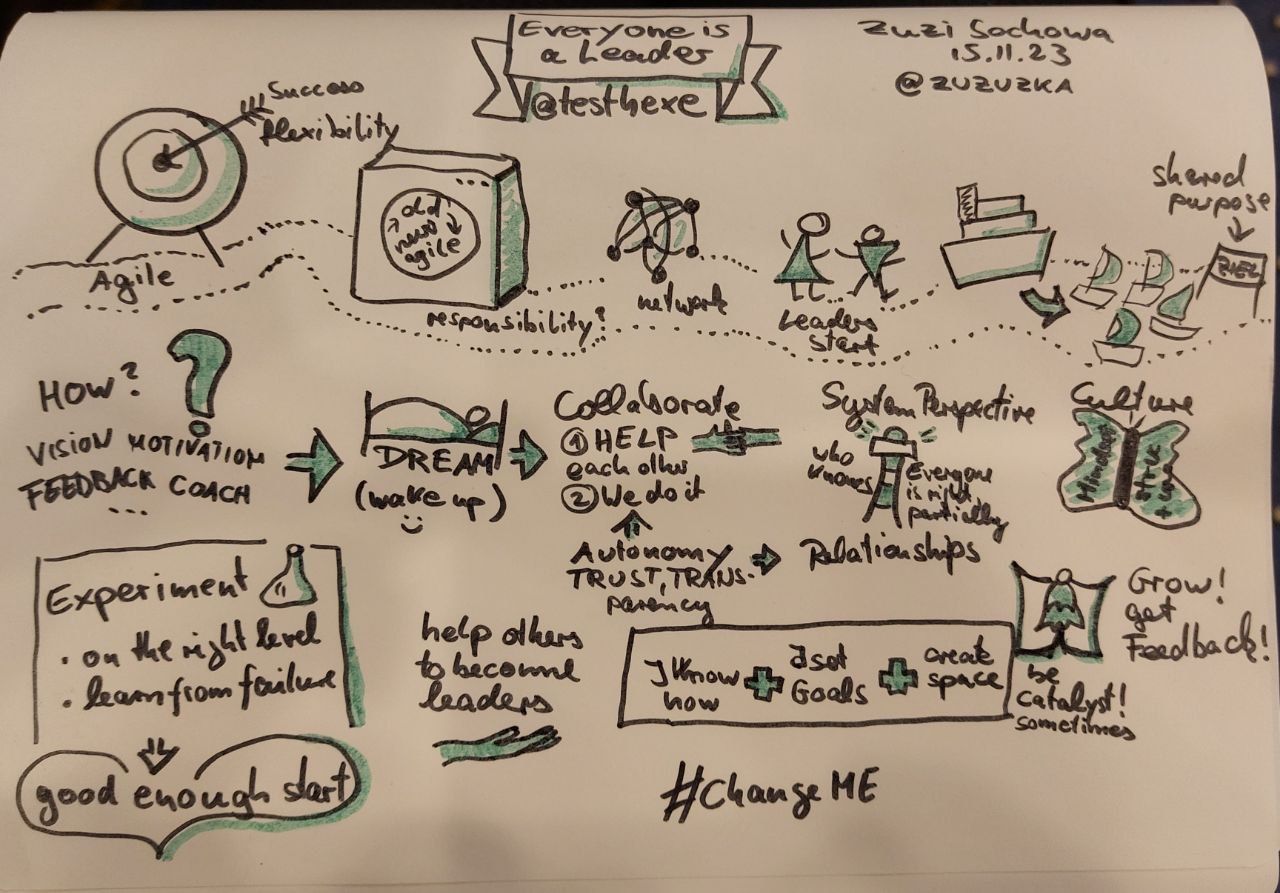 Everyone is
a Leader
@testhexe
Zuzi Sochowa
15.11.23
@ZUZUZKA
Success
flexibility
Agile
old
new
agile
responsibility?
network
Leaders
start
shared
purpose
ZIEL
HOW?
VISION MOTIVATION
FEEDBACK COACH
...
DREAM
(wake up)
Collaborate
① HELP
each other
② We do it
Autonomy
TRUST, TRANS-
parency
System Perspective
who
knows
Everyone
is right,
partially
Relationships
Culture
Mindset
Experiment
• on the right level
• learn from failure
good enough start
help others
to become
leaders
I know
how
I set
Goals
create
space
Grow!
get
Feedback!
be
Catalyst!
sometimes
#ChangeME